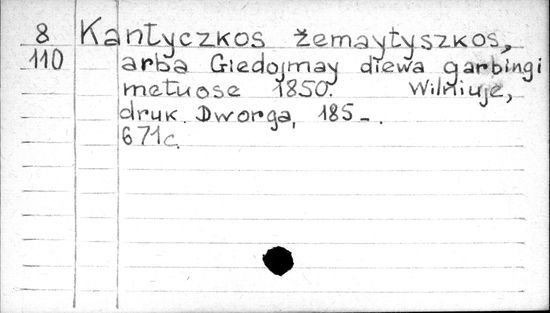 8 Kantyczkos žemaytyszkos,
110 arba Giedojmay diewa garbingi
metuose 1850. Wilniuje,
druk. Dworga, 185-.
671c.